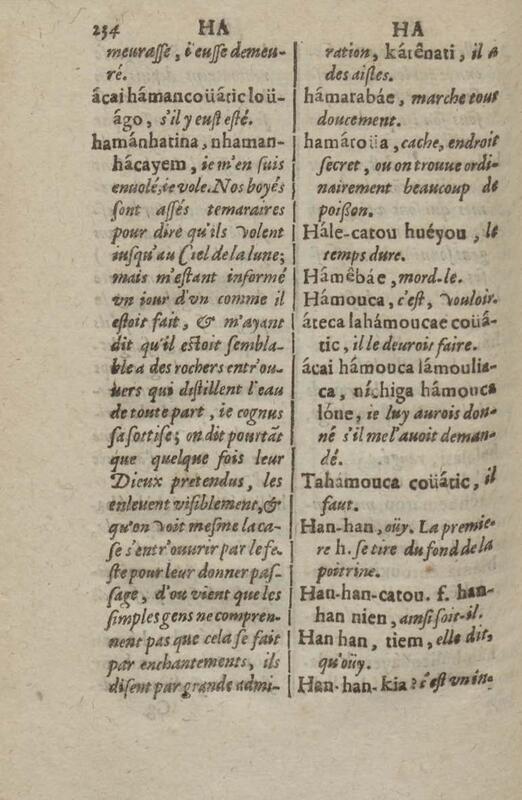 234 HA HA
meurasse, i'eusse demeu-
ré.
ácai hámancoüátic loü-
ágo, s'il y eust esté.
hamánhatina, nhaman-
hácayem, ie m'en suis
enuolé, ie vole. Nos boyés
sont assés temaraires
pour dire qu'ils volent
iusqu'au Ciel de la lune;
mais m'estant informé
vn iour d'vn comme il
estoit fait, & m'ayant
dit qu'il estoit sembla-
ble a des rochers entr'ou-
uers qui distillent l'eau
de toute part, ie cognus
sa sottise; on dit pourtāt
que quelque fois leur
Dieux pretendus, les
enleuent visiblement, &
qu'on voit mesme la ca-
se s'entr'ouurir par le fe-
ste pour leur donner pas-
sage, d'ou vient que les
simples gens ne compren-
nent pas que cela se fait
par enchantements, ils
disent par grande admi-
ration, kátênati, il a
des aisles.
hámarabáe, marche tout
doucement.
hamátoüa, cache, endroit
secret, ou on trouue ordi-
nairement beaucoup de
poißon.
Hále-catou huéyou, le
temps dure.
Hámêbáe, mord-le.
Hámouca, c'est, vouloir.
áteca lahámoucae coüá-
tic, il le deurois faire.
ácai hámouca lámoulia-
ca, níchiga hámouca
lóne, ie luy aurois don-
né s'il me l'auoit deman-
dé.
Tahámouca coüátic, il
faut.
Han-han, oüy. La premie-
re h. se tire du fond de la
poitrine.
Han-han-catou. f. han-
han nien, ainsi soit-il.
Han han, tiem, elle dit,
qu'oüy.
Han-han-kia? c'est vn in-